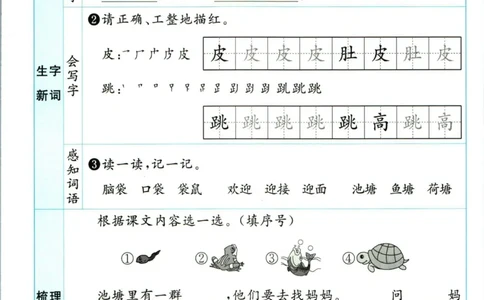 ❷请正确、工整地描红。
生字
新词
会写字
皮:
皮 皮 皮 皮 皮 肚 皮 肚 皮
跳:
跳 跳 跳 跳 跳 高 跳 高
感知词语
❸读一读,记一记。
脑袋 口袋 袋鼠 欢迎 迎接 迎面 池塘 鱼塘 荷塘
梳理
根据课文内容选一选。(填序号)
① ② ③ ④
池塘里有一群 ,他们要去找妈妈。 问 妈